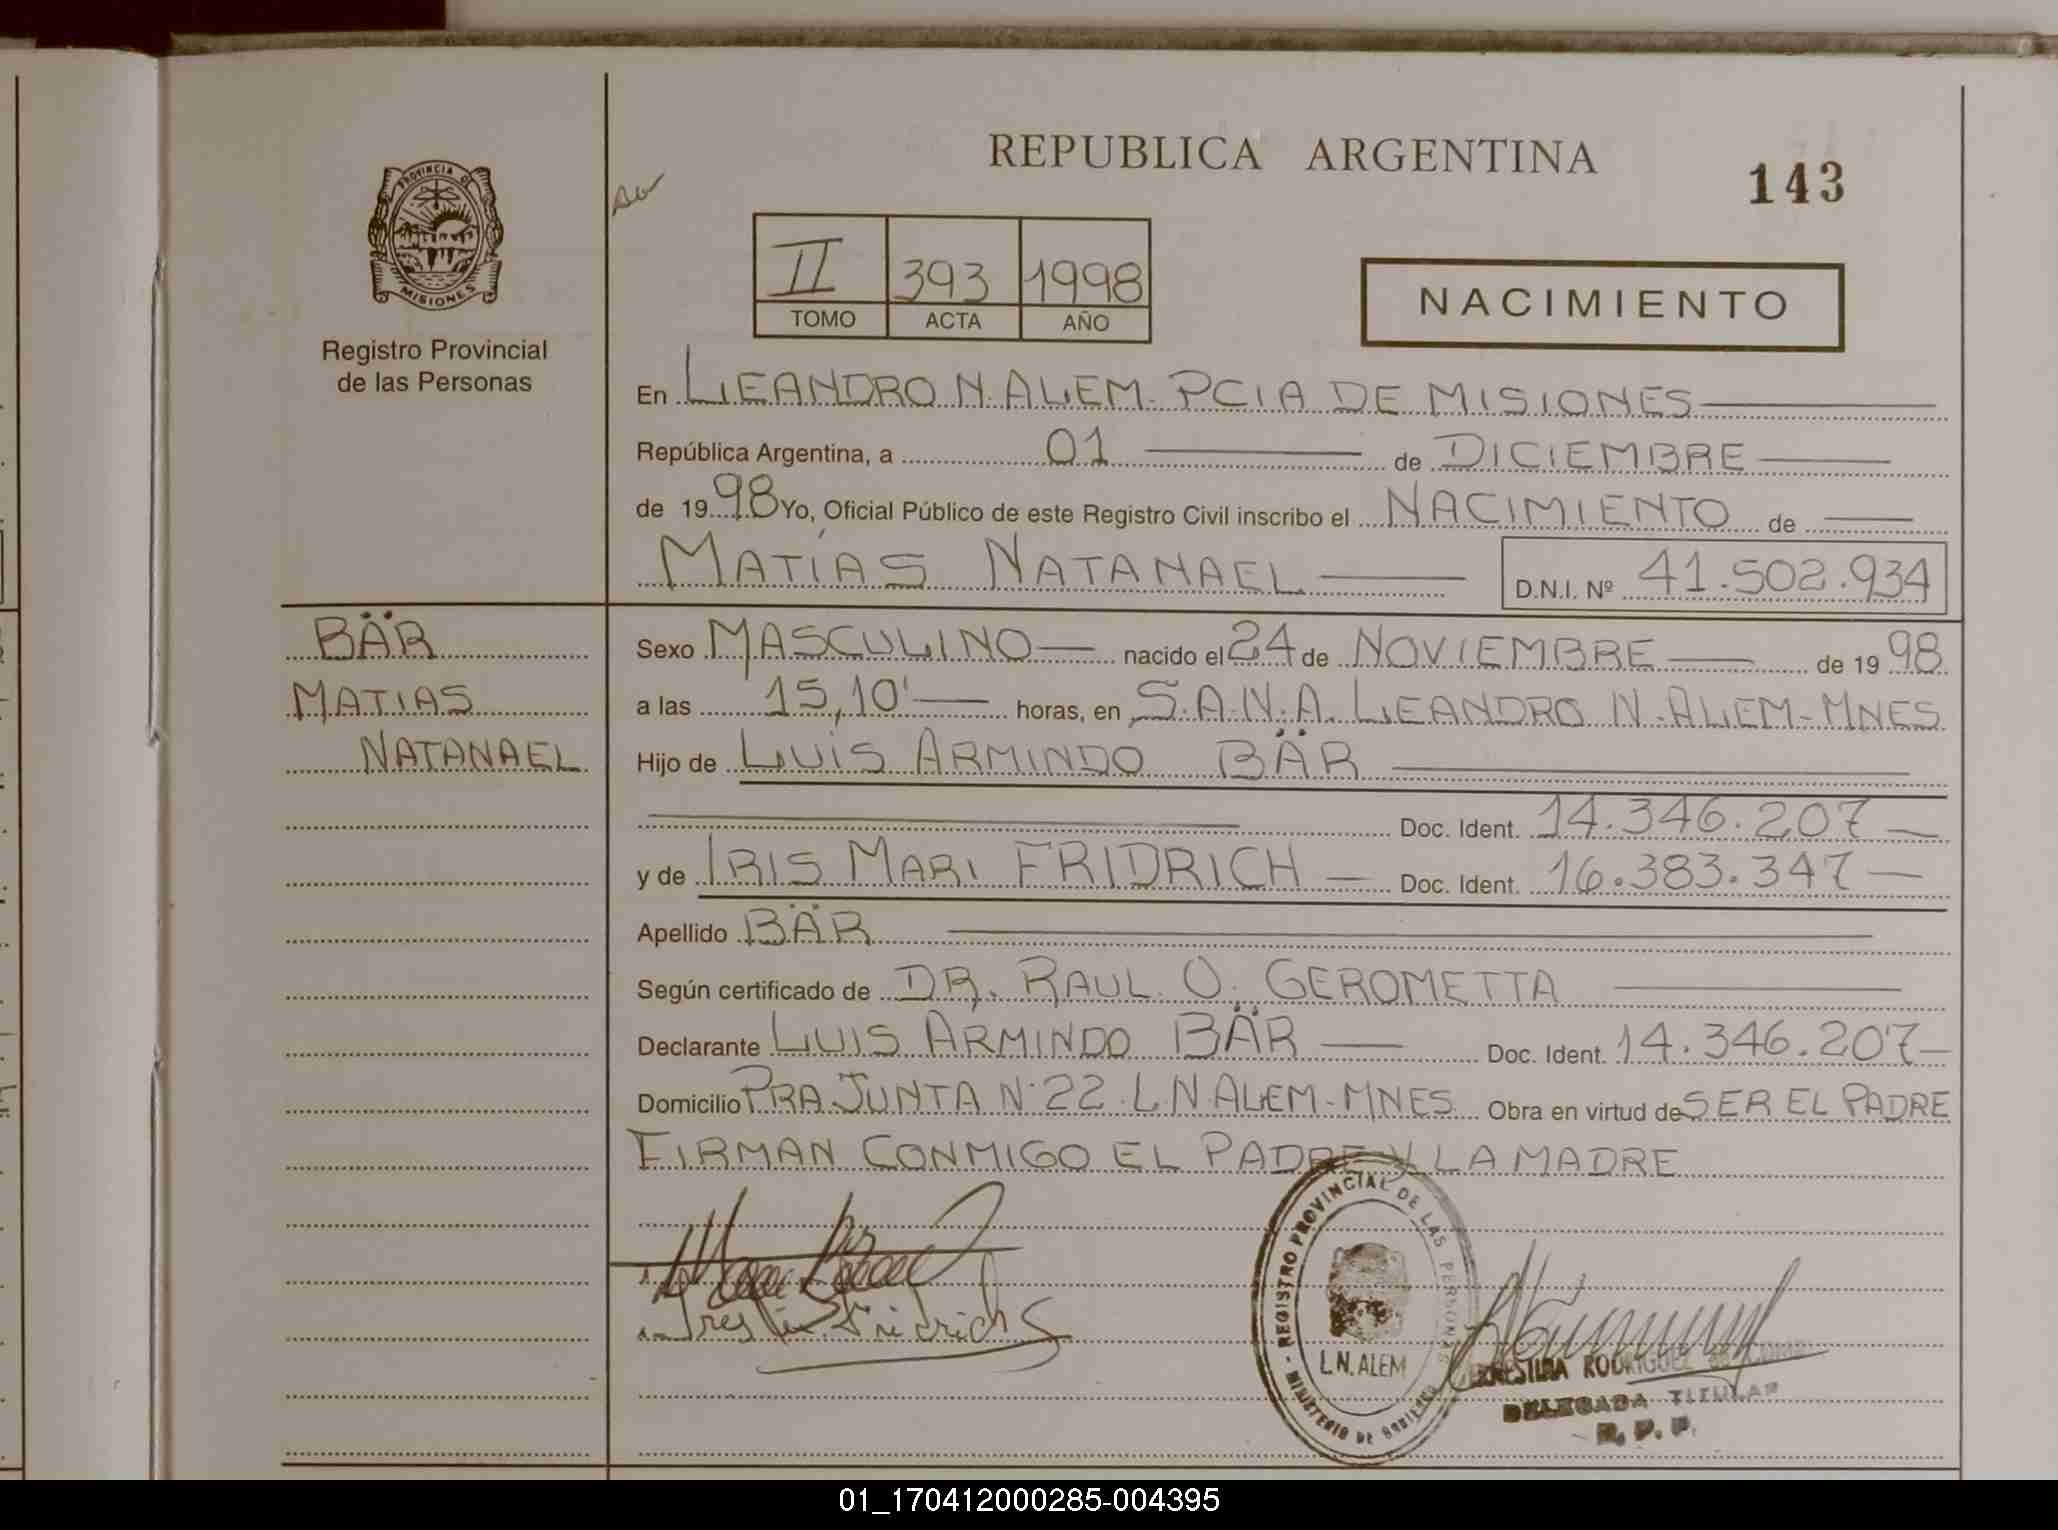 REPUBLICA ARGENTINA
143
PROVINCIA DE
MISIONES
Registro Provincial
de las Personas
II 393 1998
TOMO ACTA AÑO
NACIMIENTO
En LEANDRO N. ALEM. PCIA DE MISIONES
República Argentina, a 01 de DICIEMBRE
de 1998 Yo, Oficial Público de este Registro Civil inscribo el NACIMIENTO de
MATÍAS NATANAEL D.N.I. Nº 41.502.934
BÄR
MATIAS
NATANAEL
Sexo MASCULINO nacido el 24 de NOVIEMBRE de 1998
a las 15,10' horas, en S.A.N.A. LEANDRO N. ALEM-MNES
Hijo de LUIS ARMINDO BÄR
Doc. Ident. 14.346.207
y de IRIS MARI FRIDRICH Doc. Ident. 16.383.347
Apellido BÄR
Según certificado de DR. RAUL O. GEROMETTA
Declarante LUIS ARMINDO BÄR Doc. Ident. 14.346.207
Domicilio PRA JUNTA N° 22. L.N. ALEM-MNES Obra en virtud de SER EL PADRE
FIRMAN CONMIGO EL PADRE Y LA MADRE
REGISTRO PROVINCIAL DE LAS PERSONAS - MINISTERIO DE GOBIERNO
L.N. ALEM
ERNESTINA RODRIGUEZ
DELEGADA TITULAR
R. P. P.
01_170412000285-004395